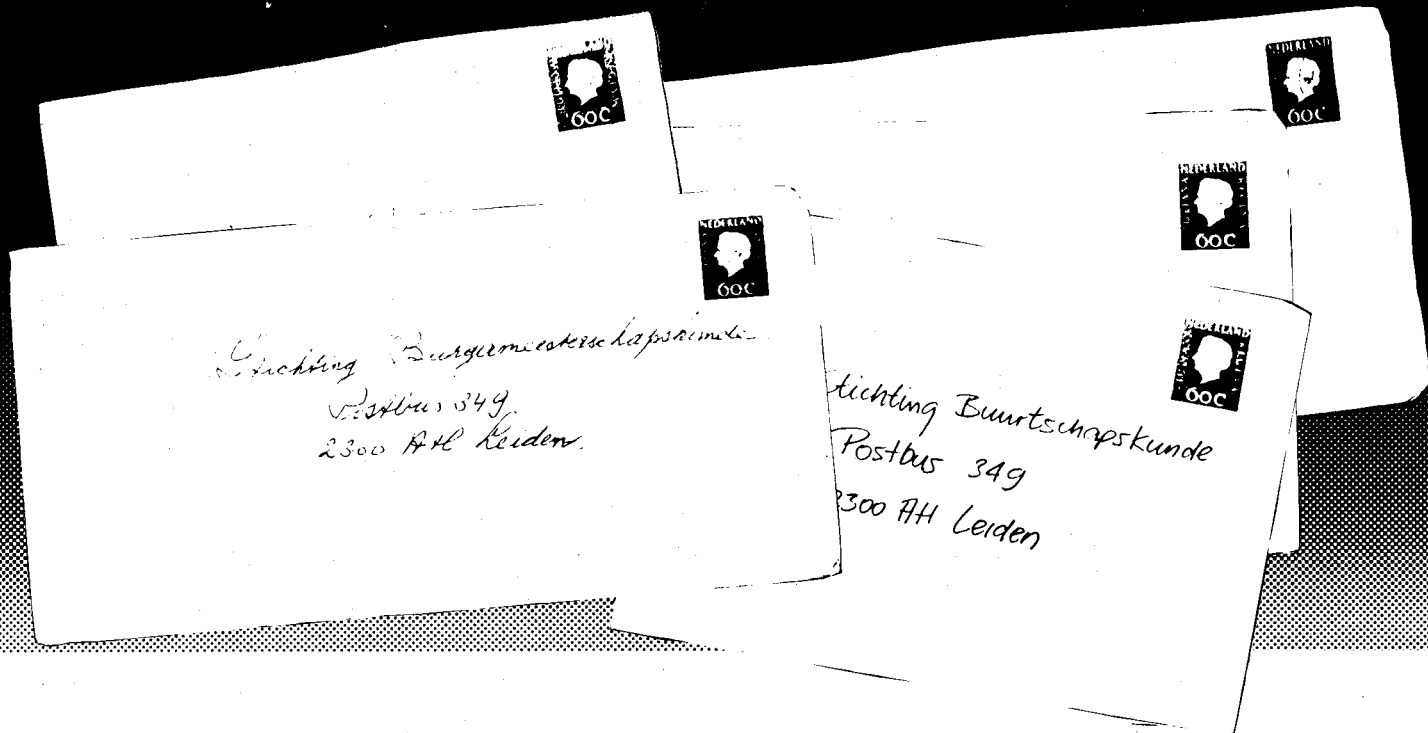 NEDERLAND
60C
NEDERLAND
60C
NEDERLAND
60C
NEDERLAND
60C
Stichting Burgermeesterschapskunde
Postbus 349
2300 AH Leiden.
NEDERLAND
60C
tichting Buurtschapskunde
Postbus 349
2300 AH Leiden